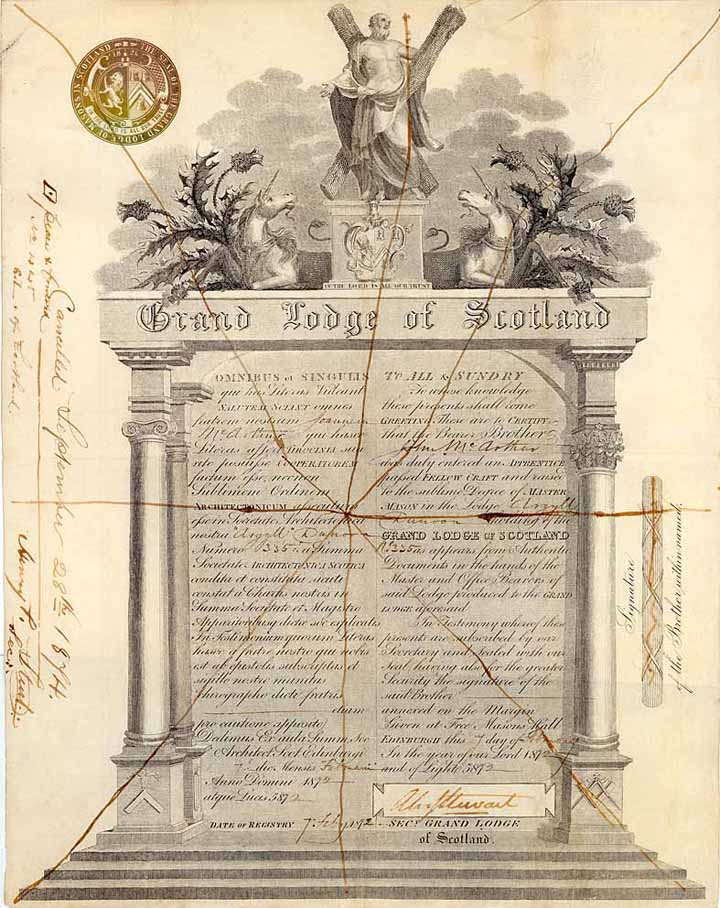 THE SEAL OF THE GRAND LODGE OF MASONS IN SCOTLAND
IN THE LORD IS ALL OUR TRUST
Grand Lodge of Scotland
OMNIBUS et SINGULIS
qui has Literas Videant
SALUTEM SCIANT omnes
fratrem nostrum Joannem
McArthur qui hasce
Literas affert TIROCINIA sua
rite posuisse COOPERATOREM
factum esse, necnon
Sublimem Ordinem
ARCHITECTONICUM
esse in Societate Architectonica
nostra Argyll Dunoon
Numero 335 a Summa
Societate ARCHITECTONICA SCOTICA
condita et constituta sicuti
constat e Chartis nostris in
Summa Societate et Magistro
Apparitoribusq dicte sic explicates
In Testimonium quorum Literas
hasce a fratre nostro qui nobis
est ab epistolis subscriptis et
sigillo nostro munitas
Chirographo dicti fratris
pro cautione apposito
Dedimus Ex aula Summ. Soc
Architect. Scot. Edinburgi
7 die Mensis
Anno Domini 1872
atque Lucis 5872
DATE OF REGISTRY 7 Feby 1872
TO ALL & SUNDRY
To whose knowledge
these presents shall come
GREETING These are to CERTIFY
that the Bearer Brother
John McArthur
was duly entered an APPRENTICE
passed FELLOW CRAFT and raised
to the sublime Degree of MASTER
MASON in the Lodge Argyll
Dunoon holding of the
GRAND LODGE OF SCOTLAND
No. 335 as appears from Authentic
Documents in the hands of the
Master and Office Bearers of
said Lodge produced to the GRAND
LODGE aforesaid
In Testimony whereof these
presents are subscribed by our
Secretary and sealed with our
Seal having also for the greater
Security the signature of the
said Brother
annexed on the Margin
Given at Free Masons Hall
EDINBURGH this 7 day of
In the year of our Lord 1872
and of Light 5872
Alex. J. Stewart
SECY. GRAND LODGE
of Scotland.
Signature
of the Brother within named.
Cancelled September 28th 1874.
Henry
Secy.